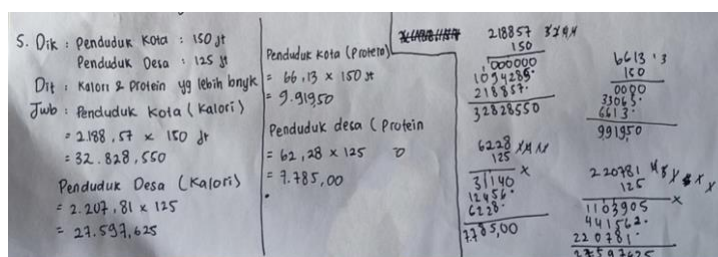 5. Dik : Penduduk Kota : 150 jt
Penduduk Desa : 125 jt
Dit : Kalori & Protein yg lebih bnyk
Jwb : Penduduk Kota (Kalori)
= 2.188,57 x 150 jt
= 32.828,550
Penduduk Desa (Kalori)
= 2.207,81 x 125
= 27.597,625
Penduduk Kota (Protein)
= 66,13 x 150 jt
= 9.91950
Penduduk desa (Protein
= 62,28 x 125
= 7.785,00
218857
150
000000
1094285.
218857.
32828550
6228
125
x
31140
12456.
6228.
7.785,00
6613
150
0000
33065.
6613.
991950
220781
125
x
1103905
441562.
220781.
27597625